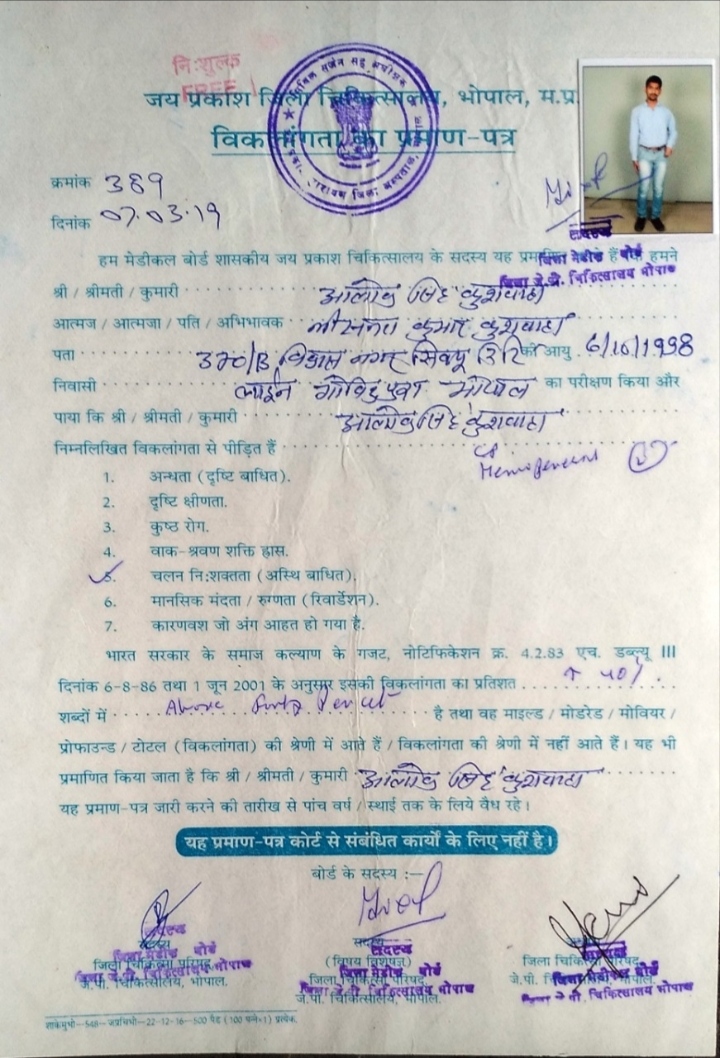 नि:शुल्क
FREE
जय प्रकाश जिला चिकित्सालय, भोपाल, म.प्र.
विकलांगता का प्रमाण-पत्र
क्रमांक 389
दिनांक 07.03.19
हम मेडीकल बोर्ड शासकीय जय प्रकाश चिकित्सालय के सदस्य यह प्रमाणित करते हैं कि हमने
सदस्य
जिला मेडीकल बोर्ड
जिला जे.पी. चिकित्सालय भोपाल
श्री / श्रीमती / कुमारी आलोक सिंह कुशवाहा
आत्मज / आत्मजा / पति / अभिभावक कुमार कुशवाहा
पता 370/B विकास नगर की आयु 6/10/1998
निवासी लाईन गोविंदपुरा भोपाल का परीक्षण किया और
पाया कि श्री / श्रीमती / कुमारी आलोक सिंह कुशवाहा
निम्नलिखित विकलांगता से पीड़ित हैं
1. अन्धता (दृष्टि बाधित).
2. दृष्टि क्षीणता.
3. कुष्ठ रोग.
4. वाक-श्रवण शक्ति ह्रास.
5. चलन नि:शक्तता (अस्थि बाधित).
6. मानसिक मंदता / रुग्णता (रिवार्डेशन).
7. कारणवश जो अंग आहत हो गया है.
भारत सरकार के समाज कल्याण के गजट, नोटिफिकेशन क्र. 4.2.83 एच. डब्ल्यू III
दिनांक 6-8-86 तथा 1 जून 2001 के अनुसार इसकी विकलांगता का प्रतिशत 40%
शब्दों में Above है तथा वह माइल्ड / मोडरेड / मोवियर /
प्रोफाउन्ड / टोटल (विकलांगता) की श्रेणी में आते हैं / विकलांगता की श्रेणी में नहीं आते हैं। यह भी
प्रमाणित किया जाता है कि श्री / श्रीमती / कुमारी आलोक सिंह कुशवाहा
यह प्रमाण-पत्र जारी करने की तारीख से पांच वर्ष / स्थाई तक के लिये वैध रहे।
यह प्रमाण-पत्र कोर्ट से संबंधित कार्यों के लिए नहीं है।
बोर्ड के सदस्य :—
सदस्य सदस्य
(विषय विशेषज्ञ)
जिला चिकित्सा परिषद जिला चिकित्सा परिषद जिला चिकित्सा परिषद
जे.पी. चिकित्सालय, भोपाल. जे.पी. चिकित्सालय, भोपाल. जे.पी. चिकित्सालय, भोपाल.
सदस्य सदस्य
जिला मेडीकल बोर्ड जिला मेडीकल बोर्ड जिला मेडीकल बोर्ड
जिला जे.पी. चिकित्सालय भोपाल जिला जे.पी. चिकित्सालय भोपाल जिला जे.पी. चिकित्सालय भोपाल